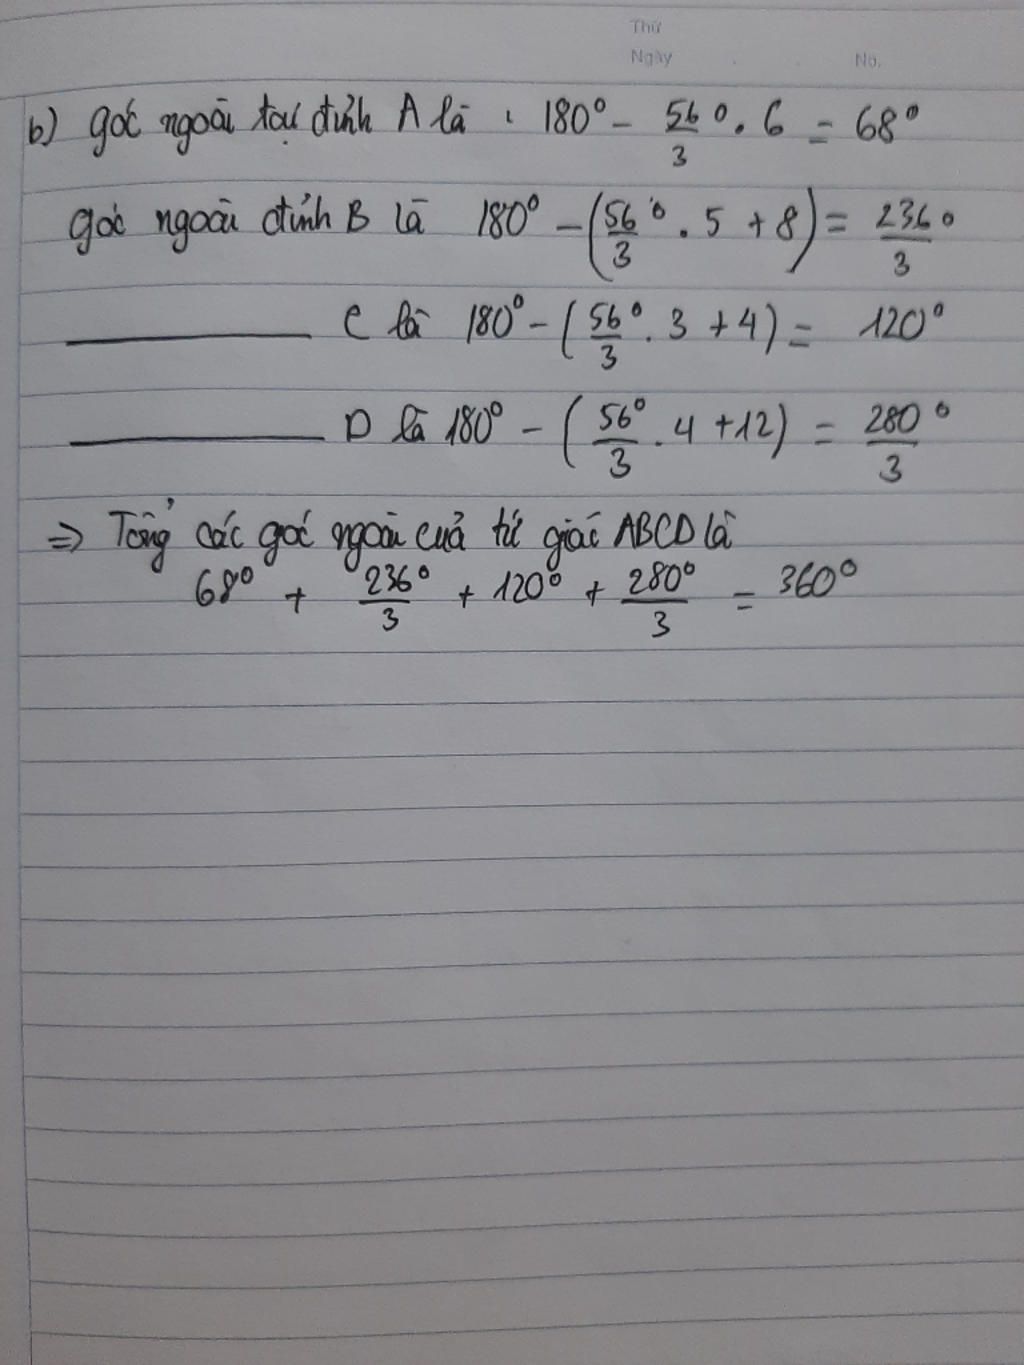 Thứ
Ngày . . No.
b) góc ngoài tại đỉnh A là : 180° - 56°/3 . 6 = 68°
góc ngoài đỉnh B là 180° - (56°/3 . 5 + 8) = 236°/3
________ C là 180° - (56°/3 . 3 + 4) = 120°
________ D là 180° - (56°/3 . 4 + 12) = 280°/3
=> Tổng các góc ngoài của tứ giác ABCD là
68° + 236°/3 + 120° + 280°/3 = 360°